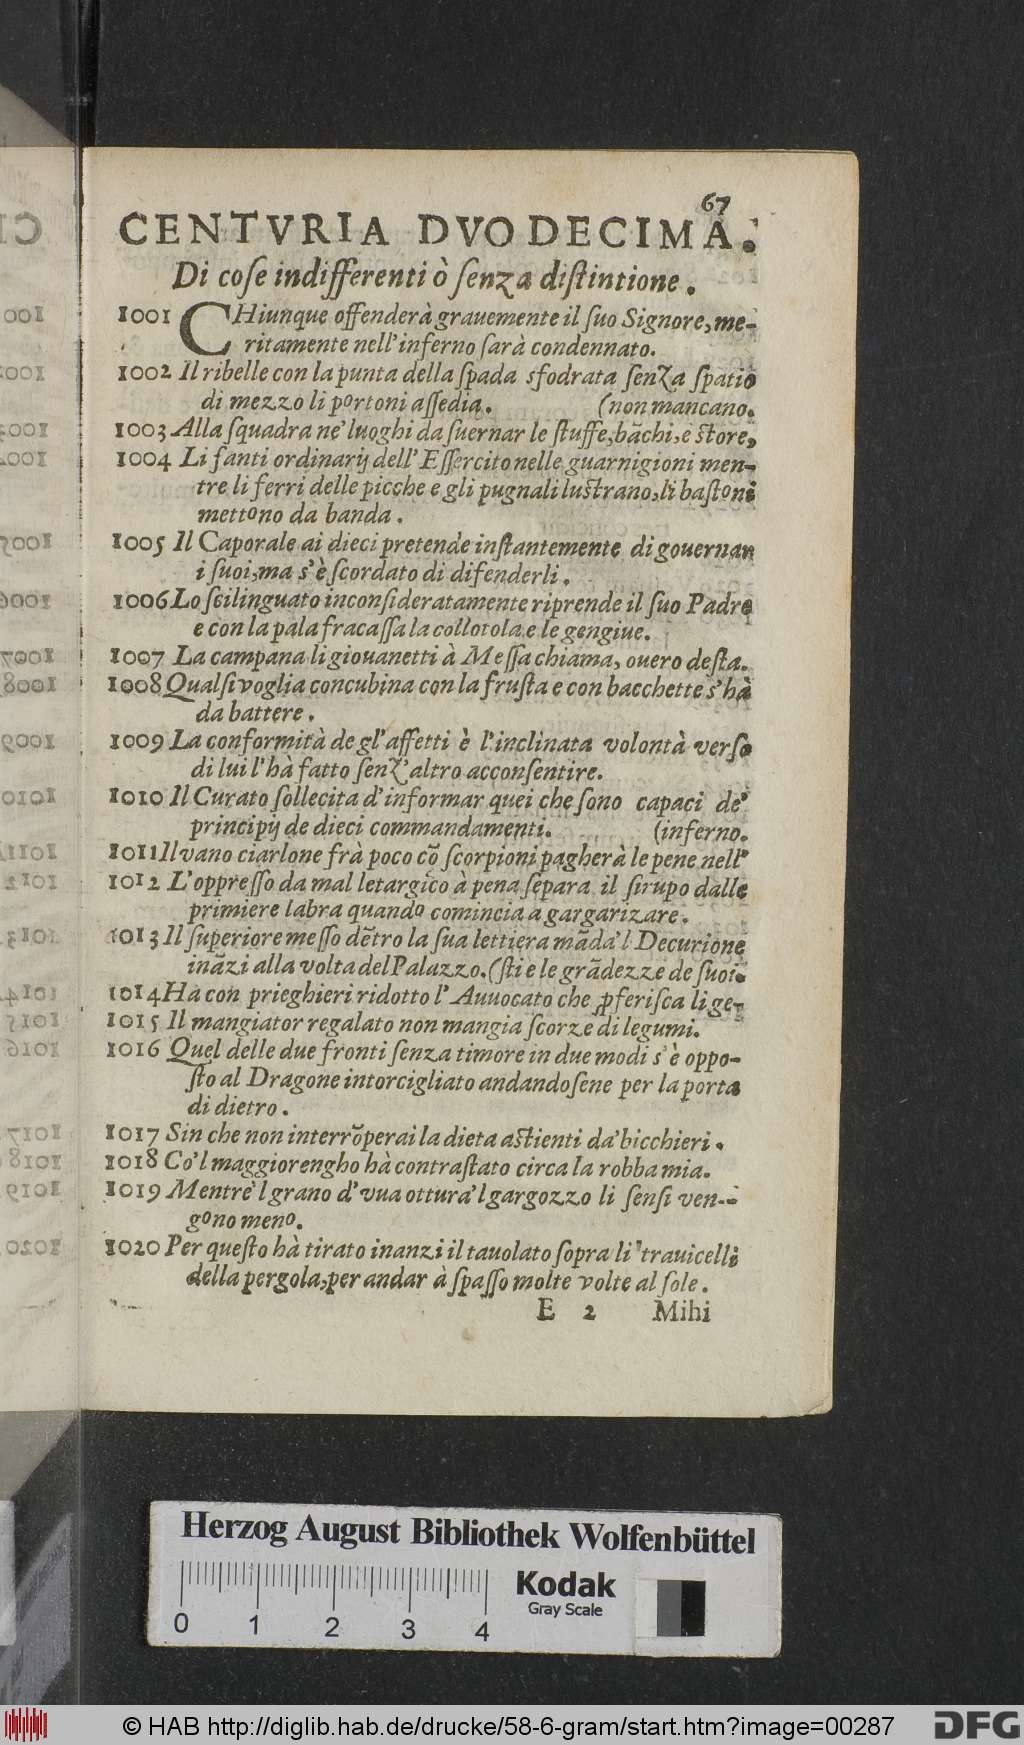 67
CENTVRIA DVODECIMA.
Di coſe indifferenti ò ſenza diſtintione.
1001 CHiunque offenderà grauemente il ſuo Signore, me-
ritamente nell'inferno ſarà condennato.
1002 Il ribelle con la punta della ſpada sfodrata ſenza ſpatio
di mezzo li portoni aſſedia. (non mancano.
1003 Alla ſquadra ne' luoghi da ſuernar le ſtuffe, bāchi, e ſtore,
1004 Li fanti ordinarij dell' Eſſercito nelle guarnigioni men-
tre li ferri delle picche e gli pugnali luſtrano, li baſtoni
mettono da banda.
1005 Il Caporale ai dieci pretende inſtantemente di gouernar
i ſuoi, ma s'è ſcordato di difenderli.
1006 Lo ſcilinguato inconſideratamente riprende il ſuo Padre
e con la pala fracaſſa la collotola e le gengiue.
1007 La campana li giouanetti à Meſſa chiama, ouero deſta.
1008 Qualſivoglia concubina con la fruſta e con bacchette s'hà
da battere.
1009 La conformità de gl'affetti è l'inclinata volontà verſo
di lui l'hà fatto ſenz'altro acconſentire.
1010 Il Curato ſollecita d'informar quei che ſono capaci de'
principij de dieci commandamenti. (inferno.
1011 Il vano ciarlone frà poco cō ſcorpioni pagherà le pene nell'
1012 L'oppreſſo da mal letargico à pena ſepara il ſirupo dalle
primiere labra quando comincia a gargarizare.
1013 Il ſuperiore meſſo dētro la ſua lettiera māda'l Decurione
ināzi alla volta del Palazzo. (ſti e le grādezze de ſuoi.
1014 Hà con prieghieri ridotto l' Auuocato che ꝓferiſca li ge-
1015 Il mangiator regalato non mangia ſcorze di legumi.
1016 Quel delle due fronti ſenza timore in due modi s'è oppo-
ſto al Dragone intorcigliato andandoſene per la porta
di dietro.
1017 Sin che non interrōperai la dieta aſtienti da' bicchieri.
1018 Co'l maggiorengho hà contraſtato circa la robba mia.
1019 Mentre'l grano d'vua ottura'l gargozzo li ſenſi ven-
gono meno.
1020 Per queſto hà tirato inanzi il tauolato ſopra li trauicelli
della pergola, per andar à ſpaſſo molte volte al ſole.
E 2 Mihi
Herzog August Bibliothek Wolfenbüttel
0 1 2 3 4
Kodak
Gray Scale
© HAB http://diglib.hab.de/drucke/58-6-gram/start.htm?image=00287
DFG